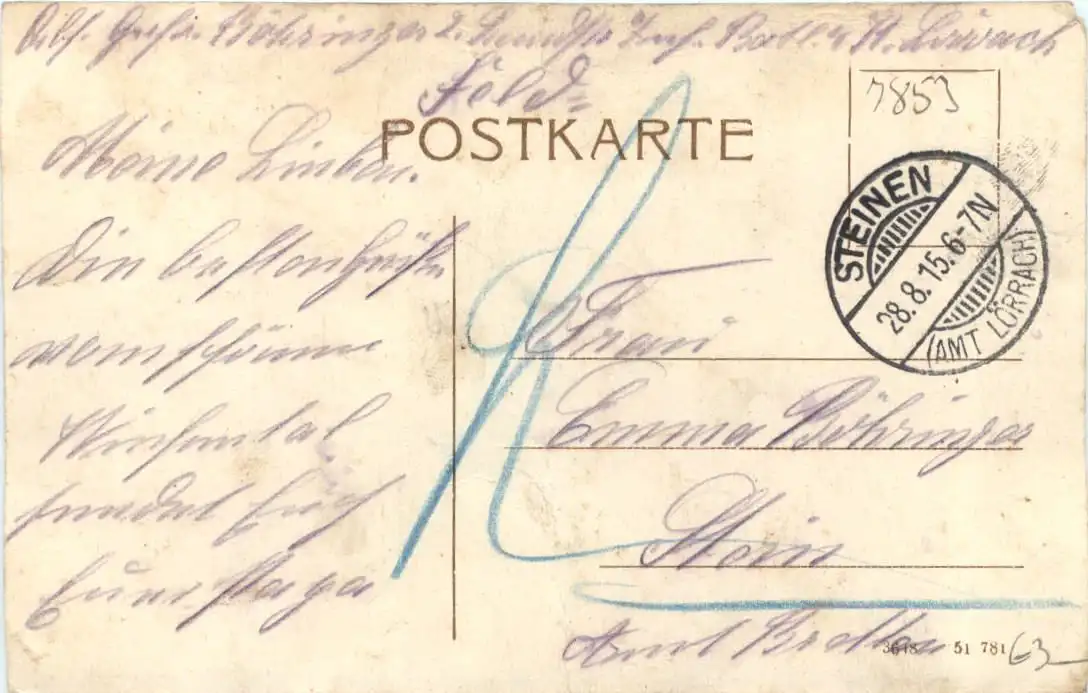 Abs. Gefr. Böhringer 2. Landst. Inf. Batl. Lörrach
7853
Feld=
POSTKARTE
Meine Lieben.
STEINEN
28.8.15.6-7N
(AMT LÖRRACH)
Die besten Grüße
vom schönen
Wiesental
sendet Euch
Euer Papa
Frau
Emma Böhringer
Stein
Amt Bretten
3618 51 781
63